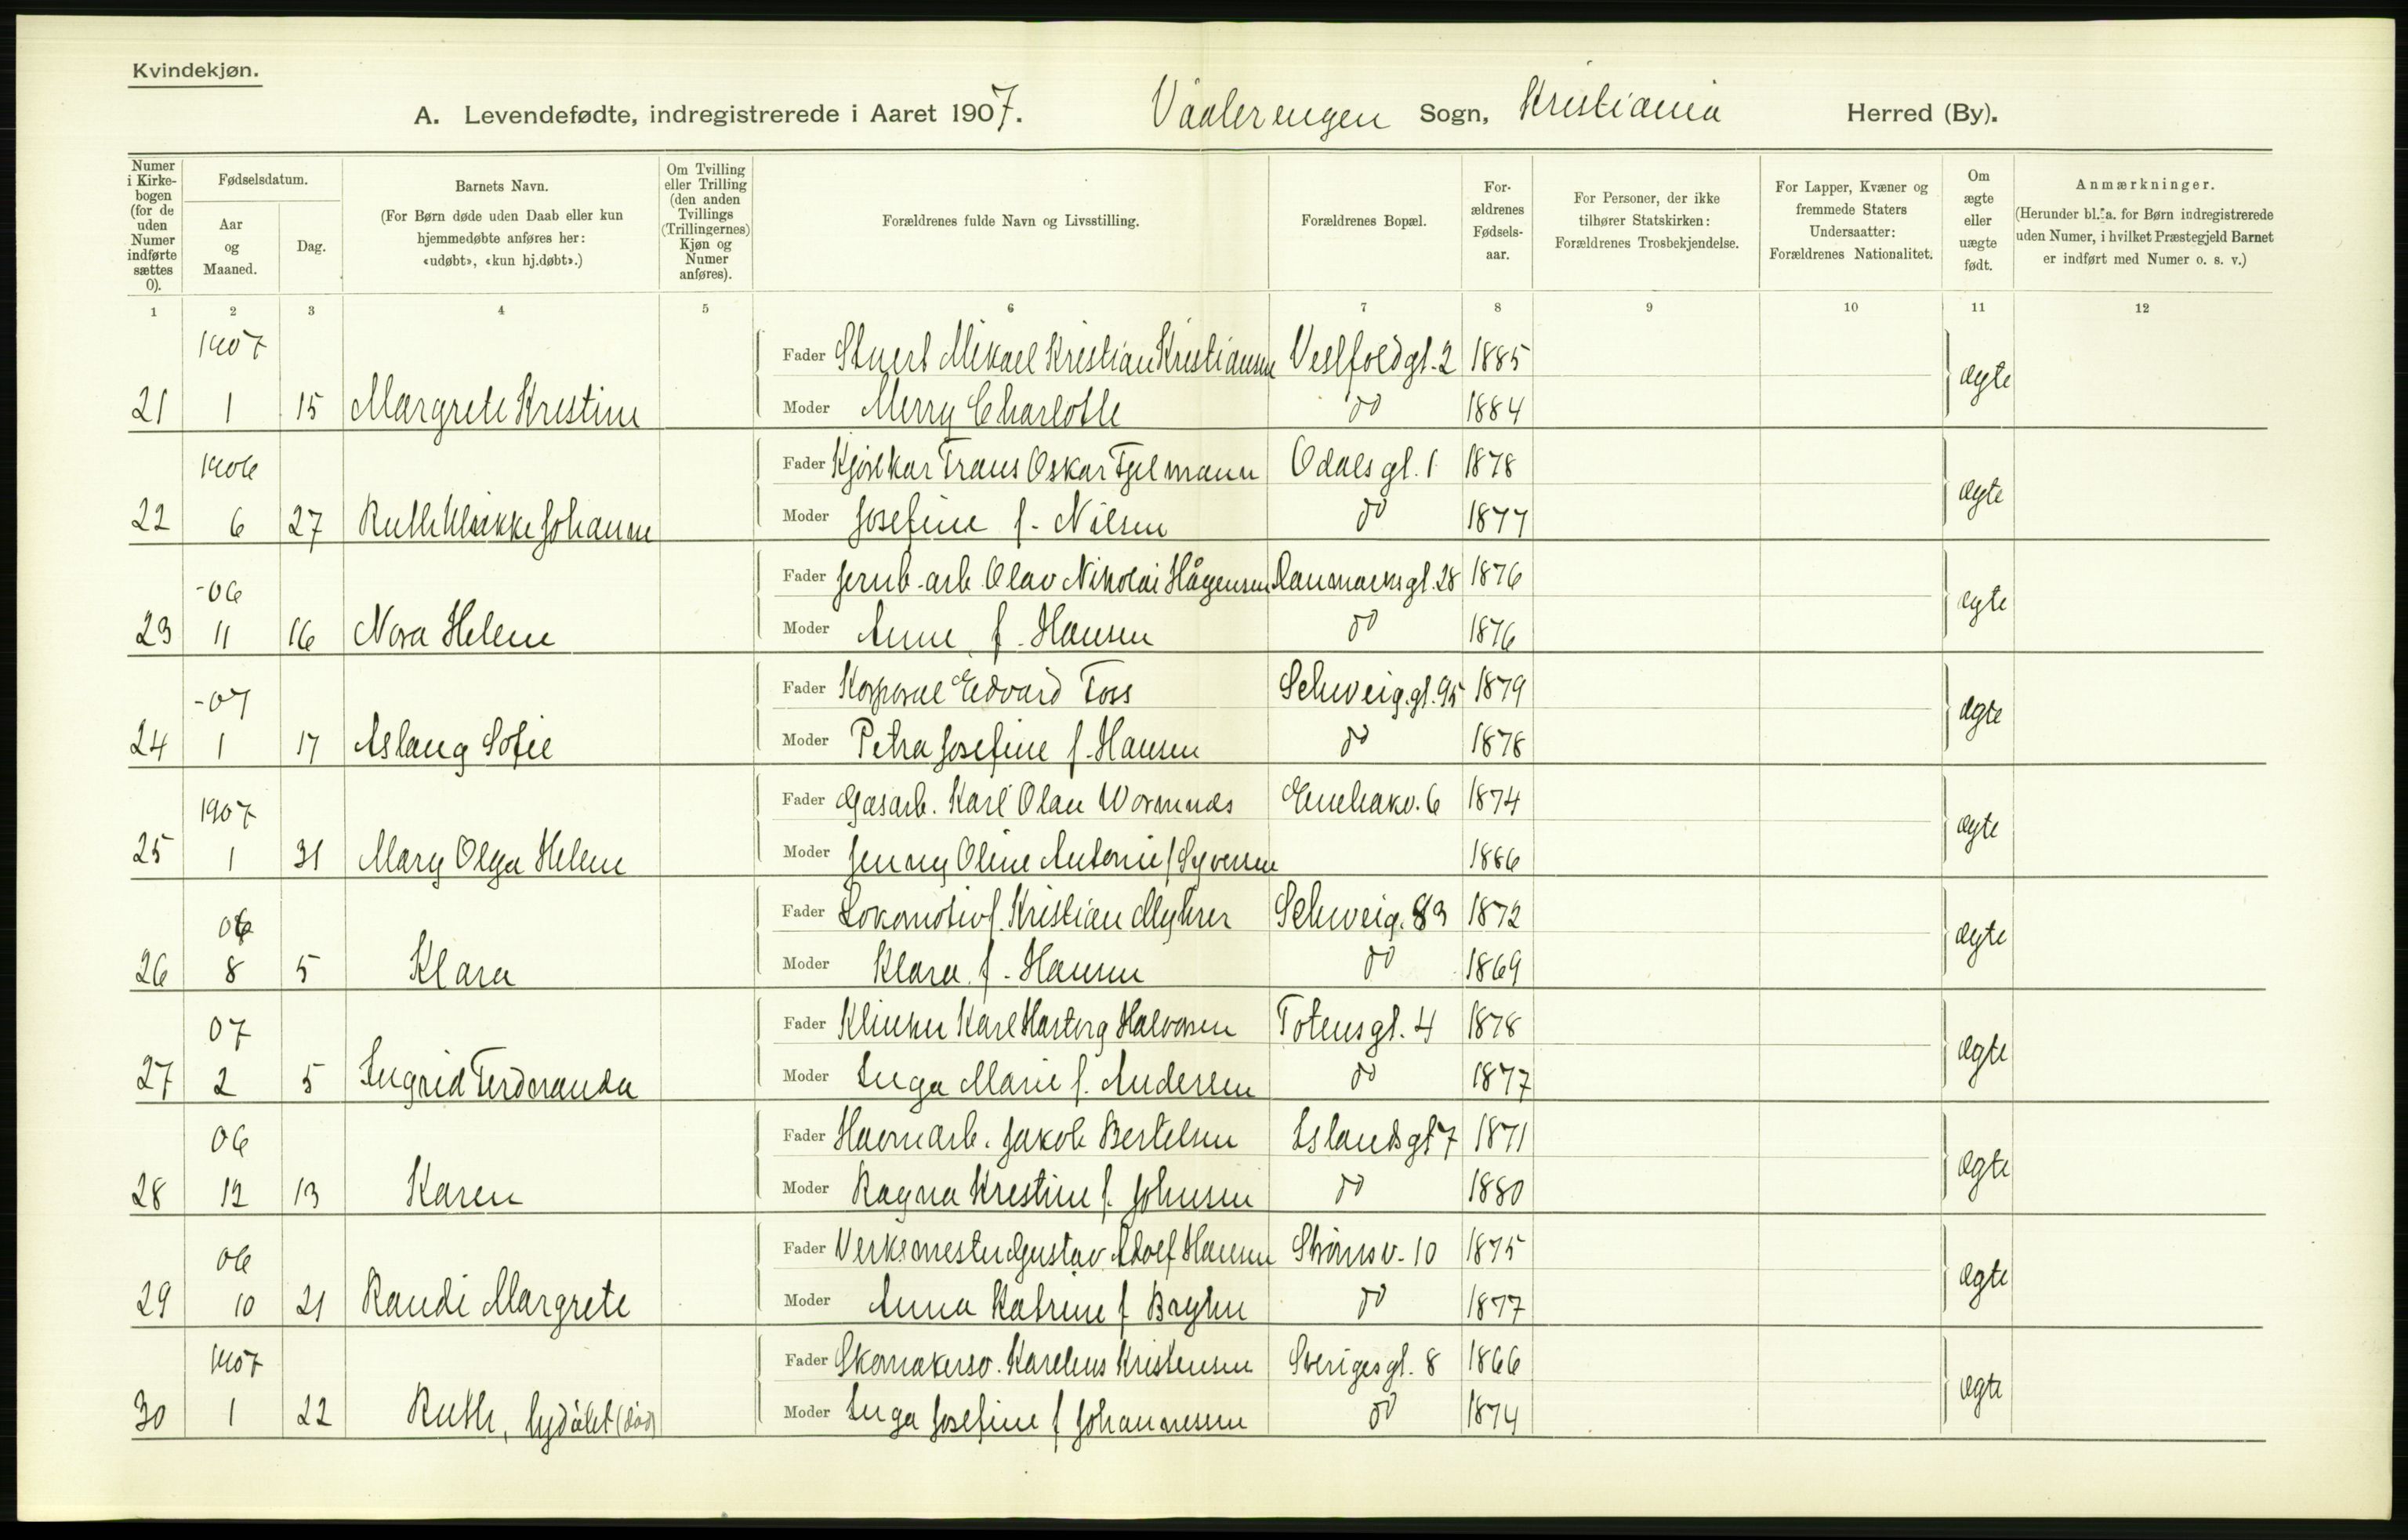 Kvindekjøn.
A. Levendefødte, indregistrerede i Aaret 1907. Vaalerengen Sogn, Kristiania Herred (By).
Numer i Kirkebogen (for de uden Numer indførte sættes 0).
Fødselsdatum.
Aar og Maaned.
Dag.
Barnets Navn.
(For Børn døde uden Daab eller kun hjemmedøbte anføres her: «udøbt», «kun hj.døbt».)
Om Tvilling eller Trilling (den anden Tvillings (Trillingernes) Kjøn og Numer anføres).
Forældrenes fulde Navn og Livsstilling.
Forældrenes Bopæl.
Forældrenes Fødselsaar.
For Personer, der ikke tilhører Statskirken: Forældrenes Trosbekjendelse.
For Lapper, Kvæner og fremmede Staters Undersaatter: Forældrenes Nationalitet.
Om ægte eller uægte født.
Anmærkninger.
(Herunder bl. a. for Børn indregistrerede uden Numer, i hvilket Præstegjeld Barnet er indført med Numer o. s. v.)
1 2 3 4 5 6 7 8 9 10 11 12
1907 Fader Stuert Mikael Kristian Kristiansen Vestfoldgt. 2 1885 ægte
21 1 15 Margrete Kristine Moder Merry Charlotte do 1884
1906 Fader Kjørekar Frans Oskar Odalsgt. 1 1878 ægte
22 6 27 Ruth Johanne Moder Josefine f. Nilsen do 1877
-06 Fader Jernb.arb. Olav Nikolai Hågensen Danmarksgt. 28 1876 ægte
23 11 16 Nora Helene Moder Anne f. Hansen do 1876
-07 Fader Korporal Edvard Foss Schweig.gt. 95 1879 ægte
24 1 17 Aslaug Sofie Moder Petra Josefine f. Hansen do 1878
1907 Fader Gasarb. Karl Olau Wormnds Enebakv. 6 1874 ægte
25 1 31 Mary Olga Helene Moder Jenny Oline Antonie f Syversen 1886
06 Fader Lokomotivf. Kristian Myhrer Schweig. 83 1872 ægte
26 8 5 Klara Moder Klara f. Hansen do 1869
07 Fader Klinker Karl Hartvig Halvorsen Totensgt. 4 1878 ægte
27 2 5 Ingrid Ferdinanda Moder Inga Marie f. Andersen do 1877
06 Fader Havnarb. Jakob Bertelsen Islandsgt 7 1871 ægte
28 12 13 Karen Moder Ragna Kristine f. Johnsen do 1880
06 Fader Verksmester Gustav Adolf Hansen Strømsv. 10 1875 ægte
29 10 21 Randi Margrete Moder Anna Katrine f do 1877
1907 Fader Skomakersv. Karelius Kristensen Sverigesgt. 8 1866 ægte
30 1 22 Ruth, (død) Moder Inga Josefine f Johannessen do 1874